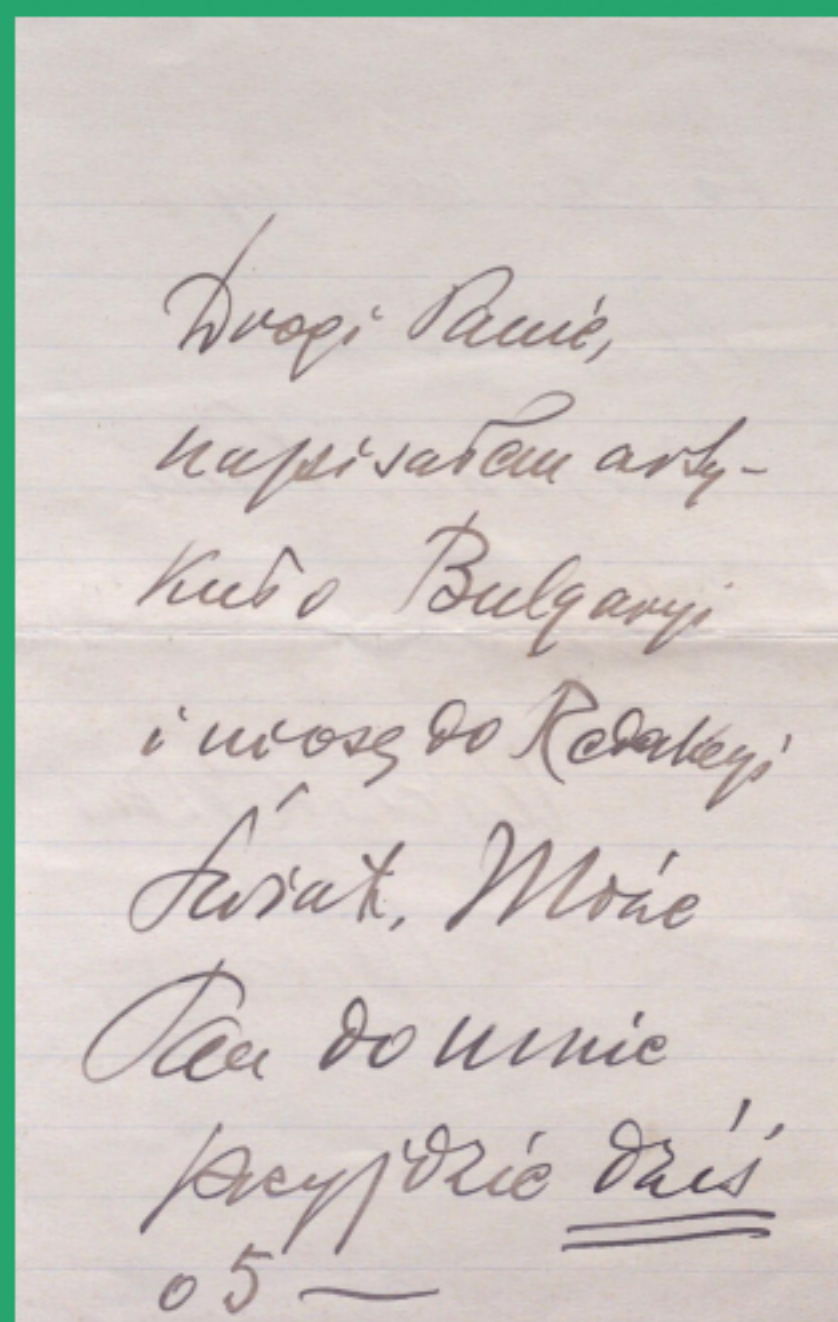 Drogi Panie,
napisałem arty-
kuł o Bulgaryi
i niosę do Redakcyi
Świat. Może
Pan do mnie
przyjdzie dziś
o 5 —